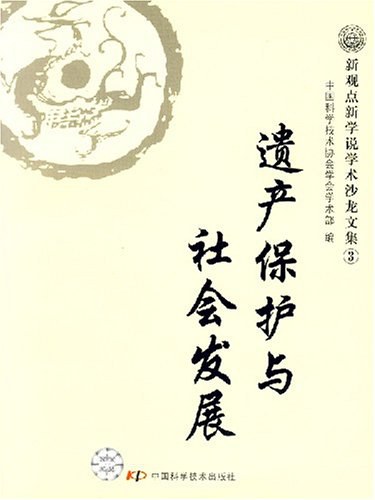 新观点新学说学术沙龙文集③
中国科学技术协会学会学术部 编
遗产保护与
社会发展
KP 中国科学技术出版社